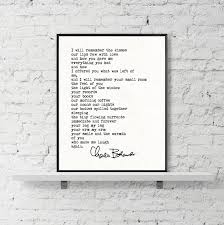 I will remember the kisses
our lips raw with love
and how you gave me
everything you had
and how
I offered you what was left of
me,
and I will remember your small room
the feel of you
the light of the window
your records
your books
our morning coffee
our noons our nights
our bodies spilled together
sleeping
the tiny flowing currents
immediate and forever
your leg my leg
your arm my arm
your smile and the warmth
of you
who made me laugh
again.